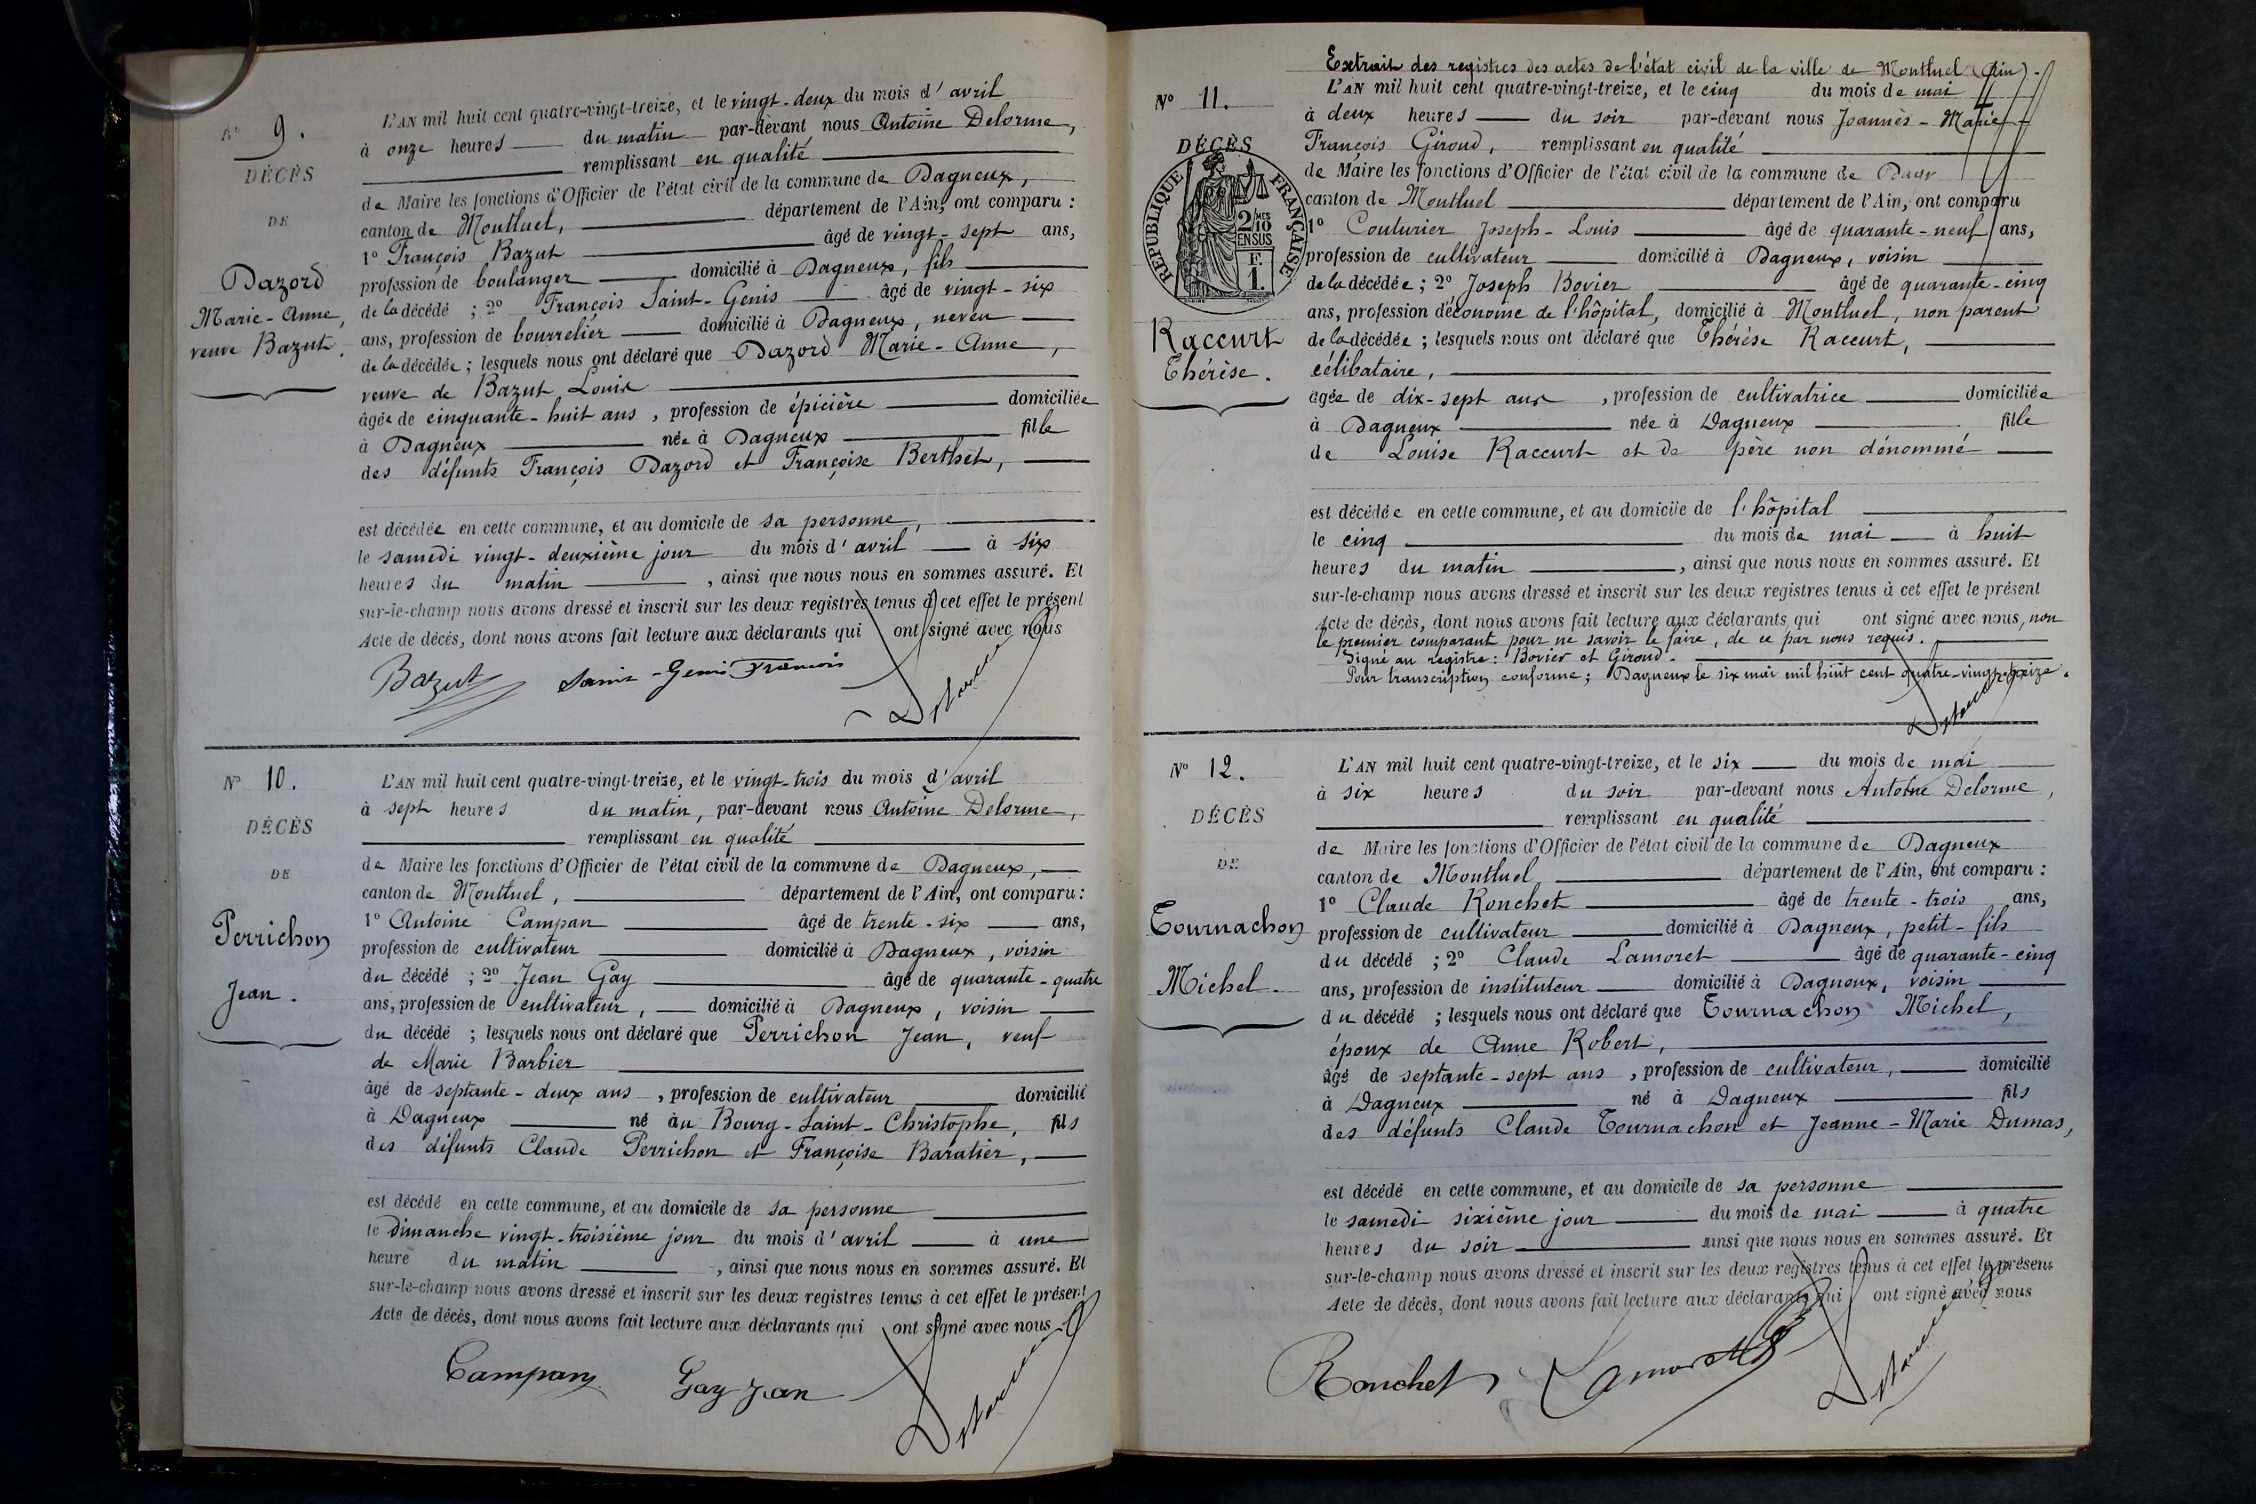 N° 9.
DÉCÈS
DE
Dazord
Marie-Anne,
veuve Bazut.
L'AN mil huit cent quatre-vingt-treize, et le vingt-deux du mois d'avril
à onze heures du matin par-devant nous Antoine Delorme,
remplissant en qualité
de Maire les fonctions d'Officier de l'état civil de la commune de Dagneux,
canton de Montluel, département de l'Ain, ont comparu :
1° François Bazut âgé de vingt-sept ans,
profession de boulanger domicilié à Dagneux, fils
de la décédé ; 2° François Saint-Genis âgé de vingt-six
ans, profession de bourrelier domicilié à Dagneux, neveu
de la décédée ; lesquels nous ont déclaré que Dazord Marie-Anne,
veuve de Bazut Louis
âgée de cinquante-huit ans, profession de épicière domiciliée
à Dagneux née à Dagneux fille
des défunts François Dazord et Françoise Berthet,
est décédée en cette commune, et au domicile de sa personne,
le samedi vingt-deuxième jour du mois d'avril à six
heures du matin, ainsi que nous nous en sommes assuré. Et
sur-le-champ nous avons dressé et inscrit sur les deux registres tenus à cet effet le présent
Acte de décès, dont nous avons fait lecture aux déclarants qui ont signé avec nous
Bazut Saint-Genis François
N° 10.
DÉCÈS
DE
Perrichon
Jean.
L'AN mil huit cent quatre-vingt-treize, et le vingt-trois du mois d'avril
à sept heures du matin, par-devant nous Antoine Delorme,
remplissant en qualité
de Maire les fonctions d'Officier de l'état civil de la commune de Dagneux,
canton de Montluel, département de l'Ain, ont comparu :
1° Antoine Campan âgé de trente-six ans,
profession de cultivateur domicilié à Dagneux, voisin
du décédé ; 2° Jean Gay âgé de quarante-quatre
ans, profession de cultivateur, domicilié à Dagneux, voisin
du décédé ; lesquels nous ont déclaré que Perrichon Jean, veuf
de Marie Barbier
âgé de septante-deux ans, profession de cultivateur domicilié
à Dagneux né au Bourg-Saint-Christophe, fils
des défunts Claude Perrichon et Françoise Baratier,
est décédé en cette commune, et au domicile de sa personne
le dimanche vingt-troisième jour du mois d'avril à une
heure du matin, ainsi que nous nous en sommes assuré. Et
sur-le-champ nous avons dressé et inscrit sur les deux registres tenus à cet effet le présent
Acte de décès, dont nous avons fait lecture aux déclarants qui ont signé avec nous
Campan Gay Jean
Extrait des registres des actes de l'état civil de la ville de Montluel (Ain).
N° 11.
DÉCÈS
RÉPUBLIQUE FRANÇAISE
2/10 MES
EN SUS
F.
1.
Raccurt
Thérèse.
L'AN mil huit cent quatre-vingt-treize, et le cinq du mois de mai
à deux heures du soir par-devant nous Joannès-Marie-
François Giroud, remplissant en qualité
de Maire les fonctions d'Officier de l'état civil de la commune de
canton de Montluel département de l'Ain, ont comparu
1° Couturier Joseph-Louis âgé de quarante-neuf ans,
profession de cultivateur domicilié à Dagneux, voisin
de la décédée ; 2° Joseph Bovier âgé de quarante-cinq
ans, profession d'économe de l'hôpital, domicilié à Montluel, non parent
de la décédée ; lesquels nous ont déclaré que Thérèse Raccurt,
célibataire,
âgée de dix-sept ans, profession de cultivatrice domiciliée
à Dagneux née à Dagneux fille
de Louise Raccurt et de père non dénommé
est décédée en cette commune, et au domicile de l'hôpital
le cinq du mois de mai à huit
heures du matin, ainsi que nous nous en sommes assuré. Et
sur-le-champ nous avons dressé et inscrit sur les deux registres tenus à cet effet le présent
Acte de décès, dont nous avons fait lecture aux déclarants qui ont signé avec nous, non
le premier comparant pour ne savoir le faire, de ce par nous requis.
Signé au registre : Bovier et Giroud.
Pour transcription conforme ; Dagneux le six mai mil huit cent quatre-vingt-treize.
N° 12.
DÉCÈS
DE
Tournachon
Michel.
L'AN mil huit cent quatre-vingt-treize, et le six du mois de mai
à six heures du soir par-devant nous Antoine Delorme,
remplissant en qualité
de Maire les fonctions d'Officier de l'état civil de la commune de Dagneux
canton de Montluel, département de l'Ain, ont comparu :
1° Claude Ronchet âgé de trente-trois ans,
profession de cultivateur domicilié à Dagneux, petit-fils
du décédé ; 2° Claude Lamoret âgé de quarante-cinq
ans, profession de instituteur domicilié à Dagneux, voisin
du décédé ; lesquels nous ont déclaré que Tournachon Michel,
époux de Anne Robert,
âgé de septante-sept ans, profession de cultivateur, domicilié
à Dagneux né à Dagneux fils
des défunts Claude Tournachon et Jeanne-Marie Dumas,
est décédé en cette commune, et au domicile de sa personne
le samedi sixième jour du mois de mai à quatre
heures du soir ainsi que nous nous en sommes assuré. Et
sur-le-champ nous avons dressé et inscrit sur les deux registres tenus à cet effet le présent
Acte de décès, dont nous avons fait lecture aux déclarants qui ont signé avec nous
Ronchet